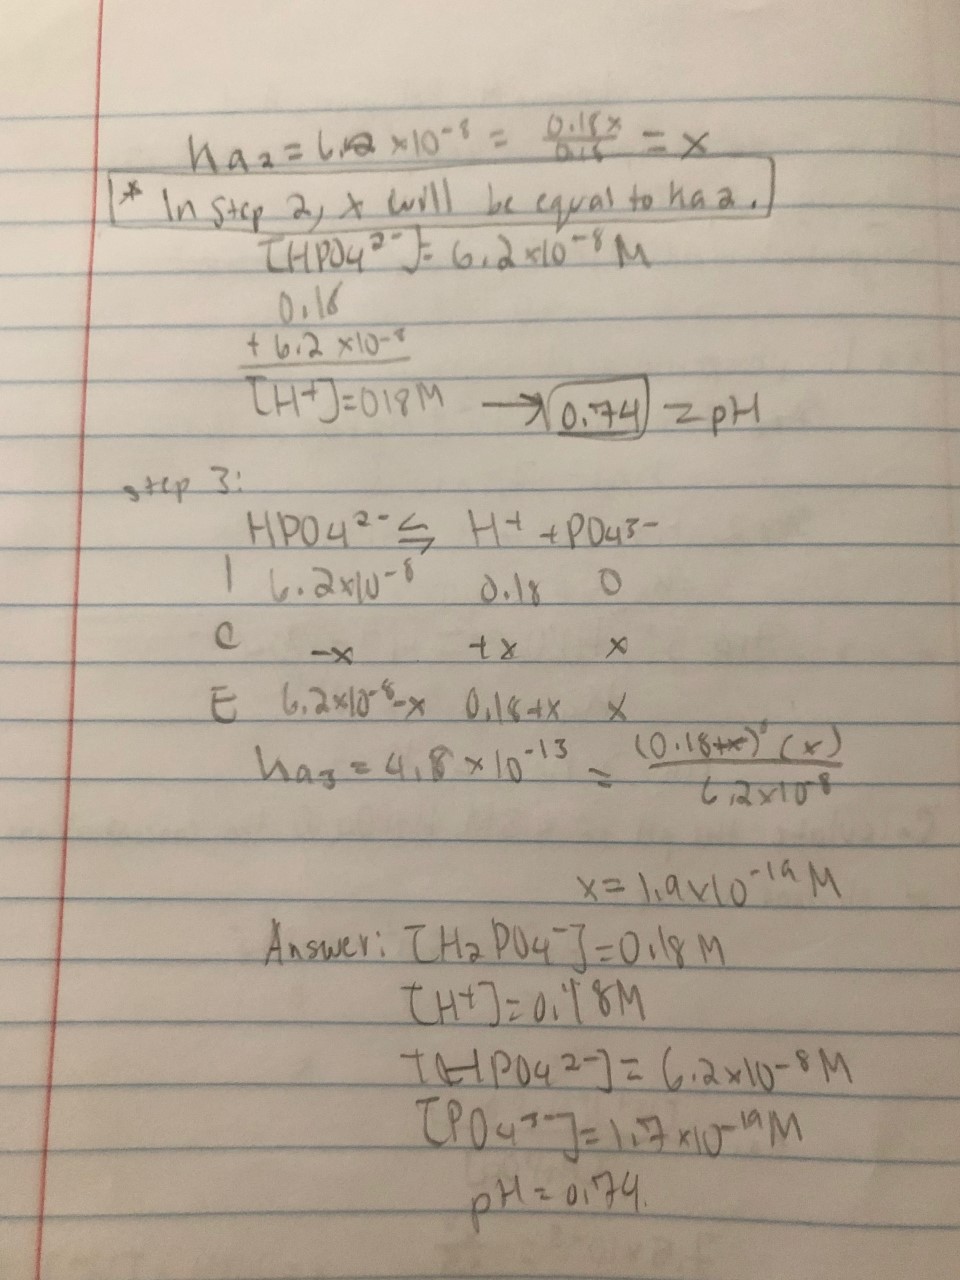 ka2 = 6.2 x10-8 = 0.18x/0.18 = x
* In step 2, x will be equal to ka2.
[HPO4 2-] = 6.2 x10-8 M
0.18
+ 6.2 x10-8
[H+]=018M → 0.74 = pH
step 3:
HPO4 2- ⇆ H+ + PO4 3-
I 6.2x10-8 0.18 0
C -x +x x
E 6.2x10-8-x 0.18+x x
ka3 = 4.8 x 10-13 = (0.18+x) (x)/6.2x10-8
x = 1.9x10-19 M
Answer: [H2PO4-]=0.18M
[H+]=0.18M
[HPO4 2-] = 6.2x10-8 M
[PO4 3-]=1.7 x10-19M
pH = 0.74.